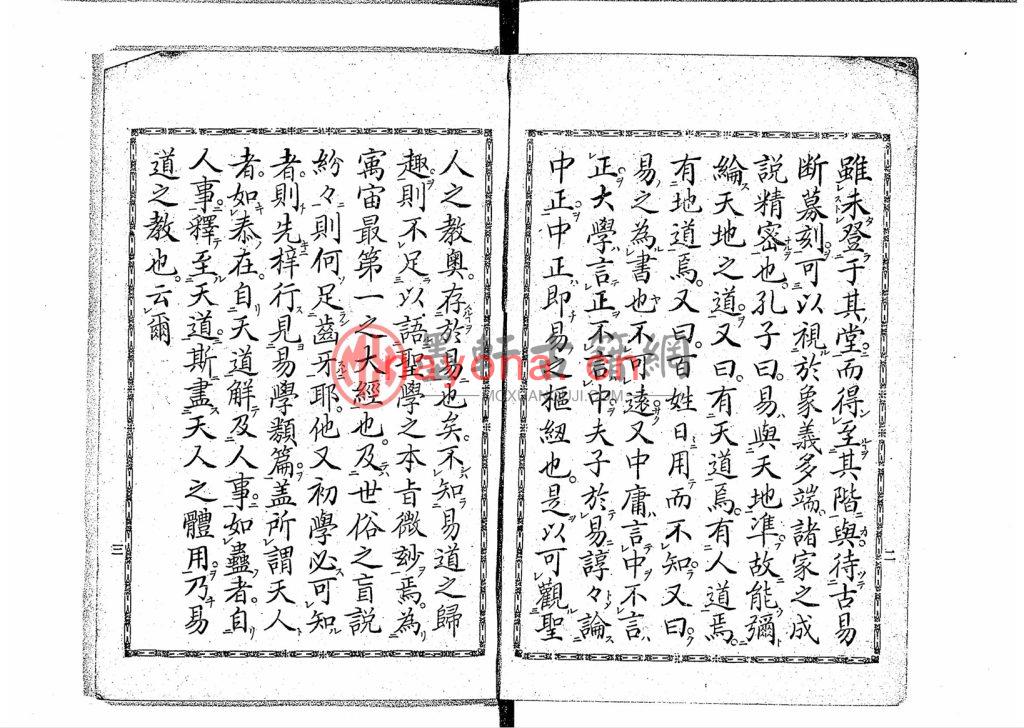 雖未登于其堂而得至其階與待古易
断募刻可以視於象義多端諸家之成
說精密也孔子曰易與天地準故能彌
綸天地之道又曰有天道焉有人道焉
有地道焉又曰百姓日用而不知又曰
易之為書也不可遠又中庸言中不言
正大學言正不言中夫子於易諄々論
中正中正即易之樞紐也是以可觀聖
二
人之教奥存於易也矣不知易道之歸
趣則不足以語聖學之本旨微玅焉為
寓宙最第一之大經也及世俗之盲說
紛々則何足齒牙耶他又初學必可知
者則先梓行見易學類篇盖所謂天人
者如泰在自天道解及人事如蠱者自
人事釋至天道斯盡天人之體用乃易
道之教也云爾
三
墨軒古籍網
mayona.cn
MOXUANGUJI.COM